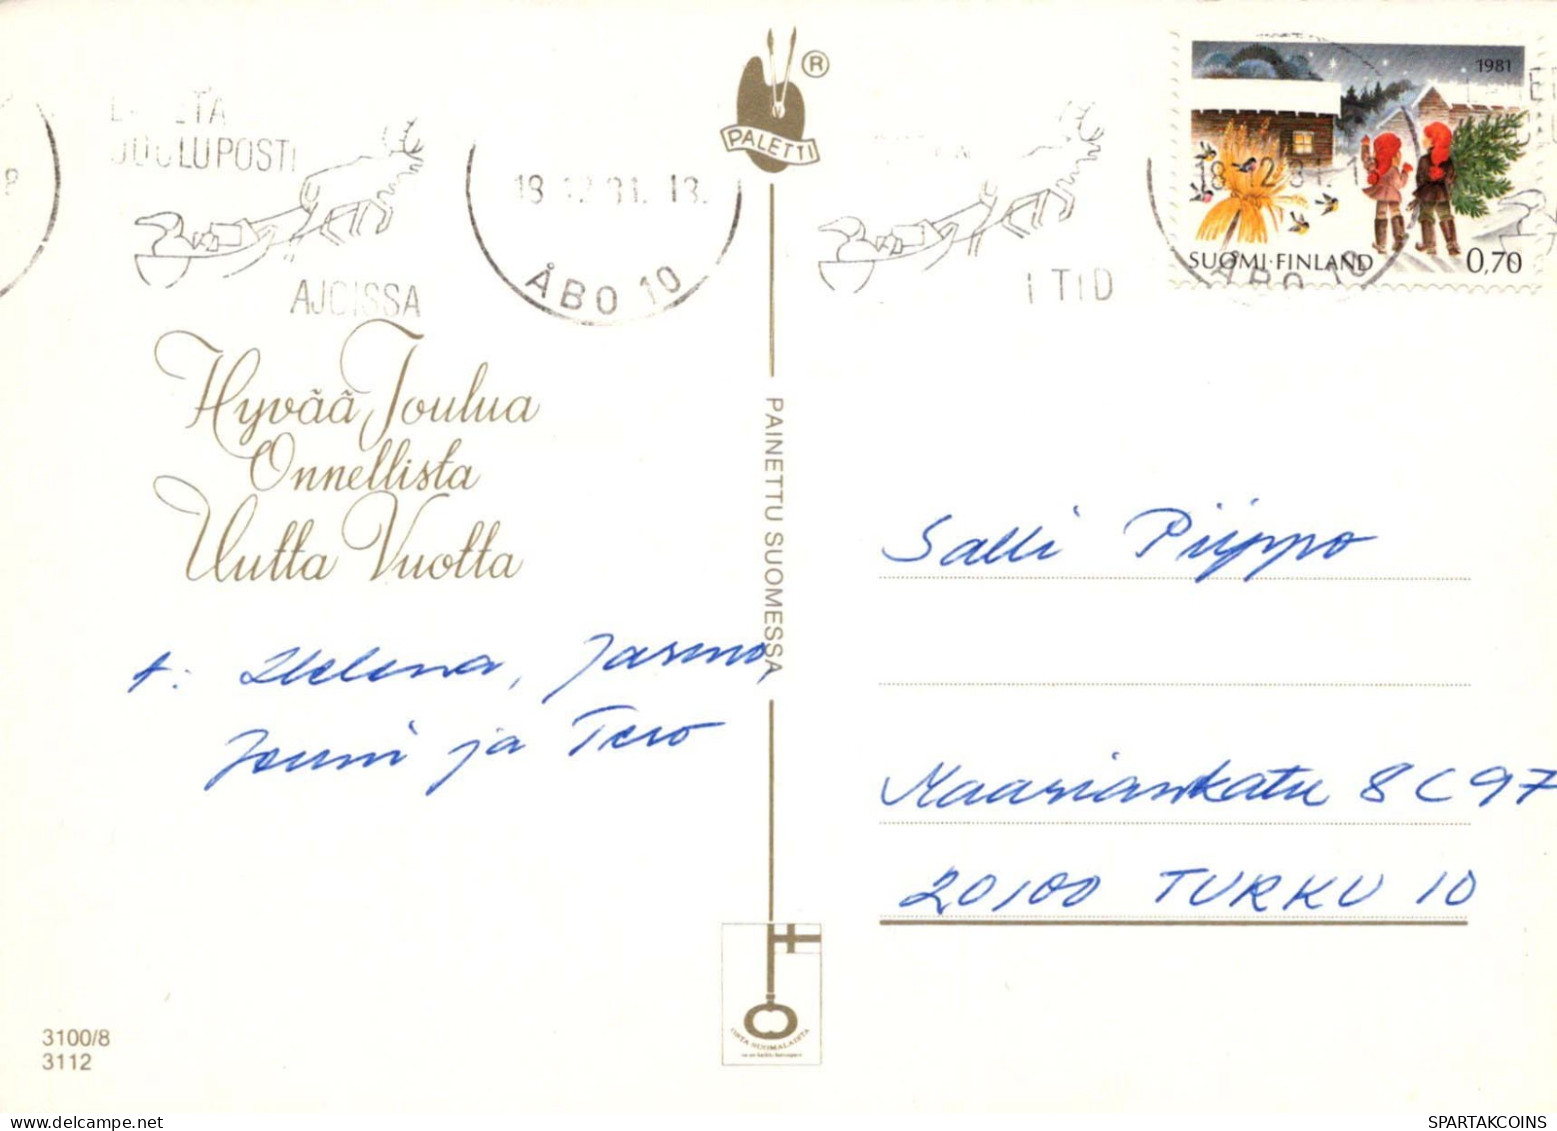 JOULUPOSTI
AJOISSA
18.12.81.13.
ÅBO 10
PALETTI
®
I TID
1981
18.12.81.1
SUOMI·FINLAND 0,70
ÅBO 10
Hyvää Joulua
Onnellista
Uutta Vuotta
t: Helena, Jarmo,
Jouni ja Tero
PAINETTU SUOMESSA
Salli Piippo
Maariankatu 8 C 97
20100 TURKU 10
OSTA SUOMALAISTA
3100/8
3112
SPARTAKCOINS